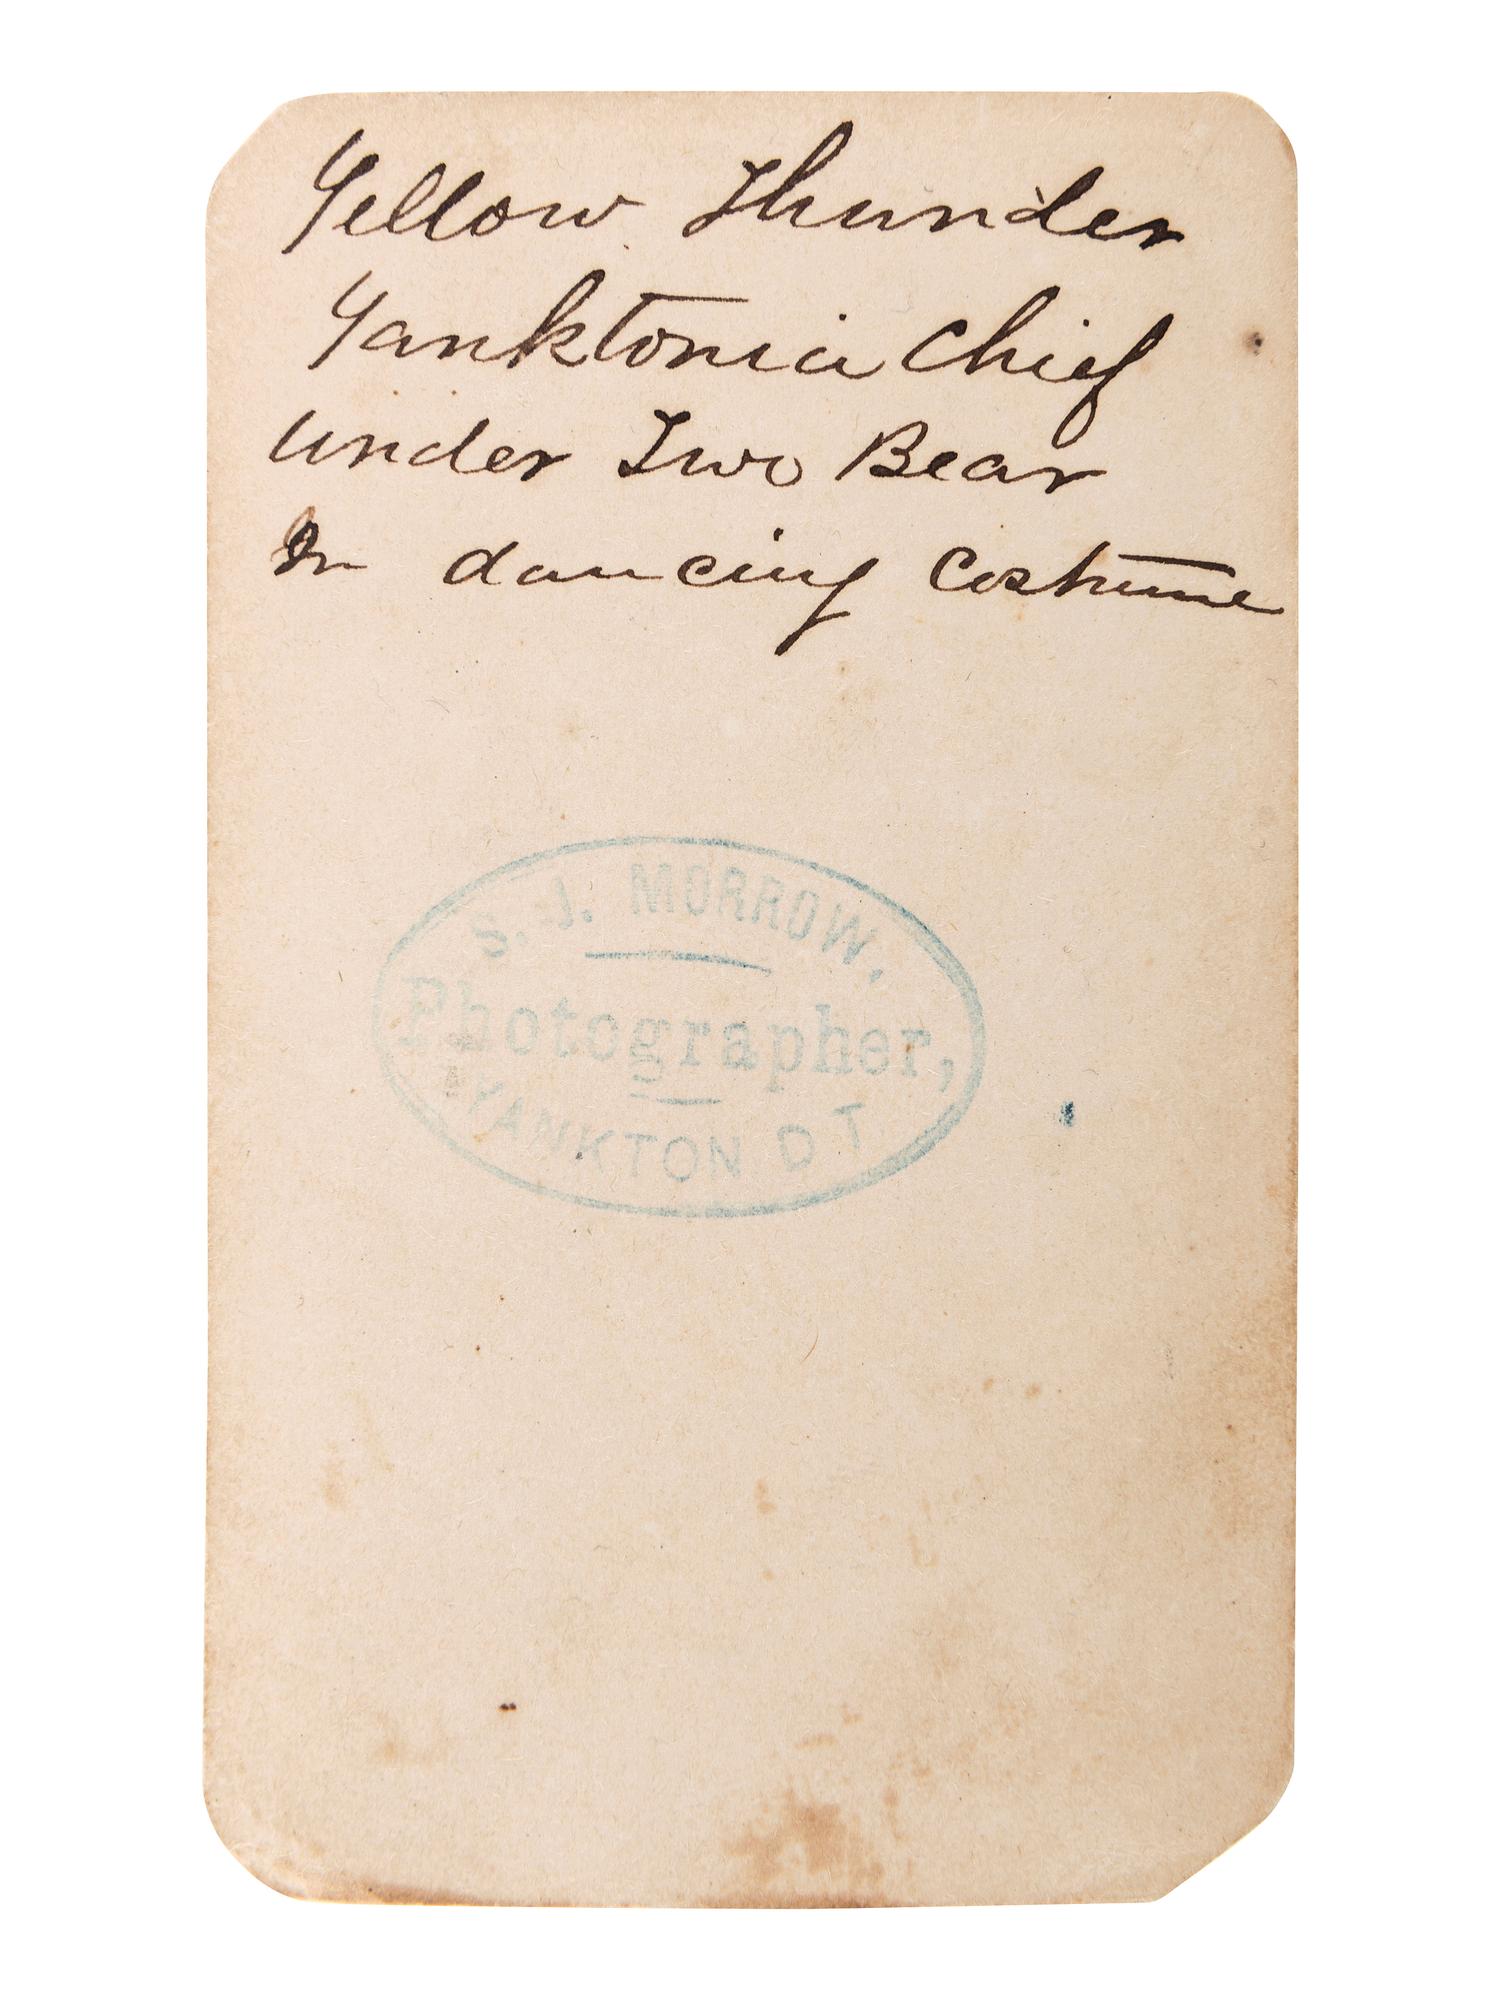 Yellow Thunder
Yanktonia Chief
under Two Bear
In dancing Costume
S. J. MORROW.
Photographer,
YANKTON D T